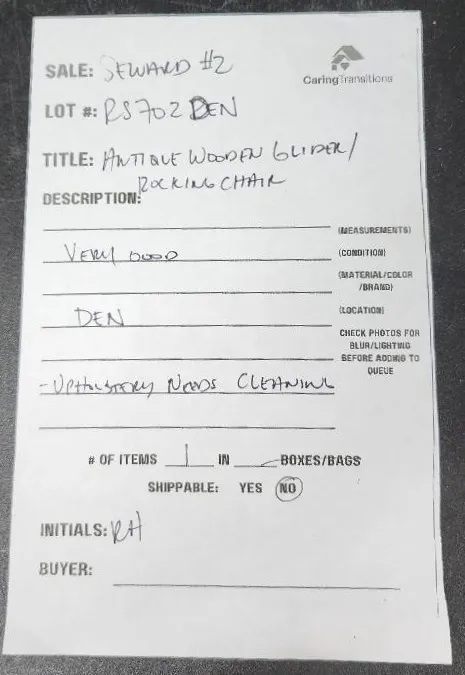 SALE: SEWARD #2
CaringTransitions
LOT #: RS702 DEN
TITLE: ANTIQUE WOODEN GLIDER/
ROCKING CHAIR
DESCRIPTION:
(MEASUREMENTS)
VERY GOOD (CONDITION)
(MATERIAL/COLOR
/BRAND)
DEN (LOCATION)
CHECK PHOTOS FOR
BLUR/LIGHTING
BEFORE ADDING TO
QUEUE
- UPHOLSTORY NEEDS CLEANING
# OF ITEMS 1 IN BOXES/BAGS
SHIPPABLE: YES NO
INITIALS: RH
BUYER: